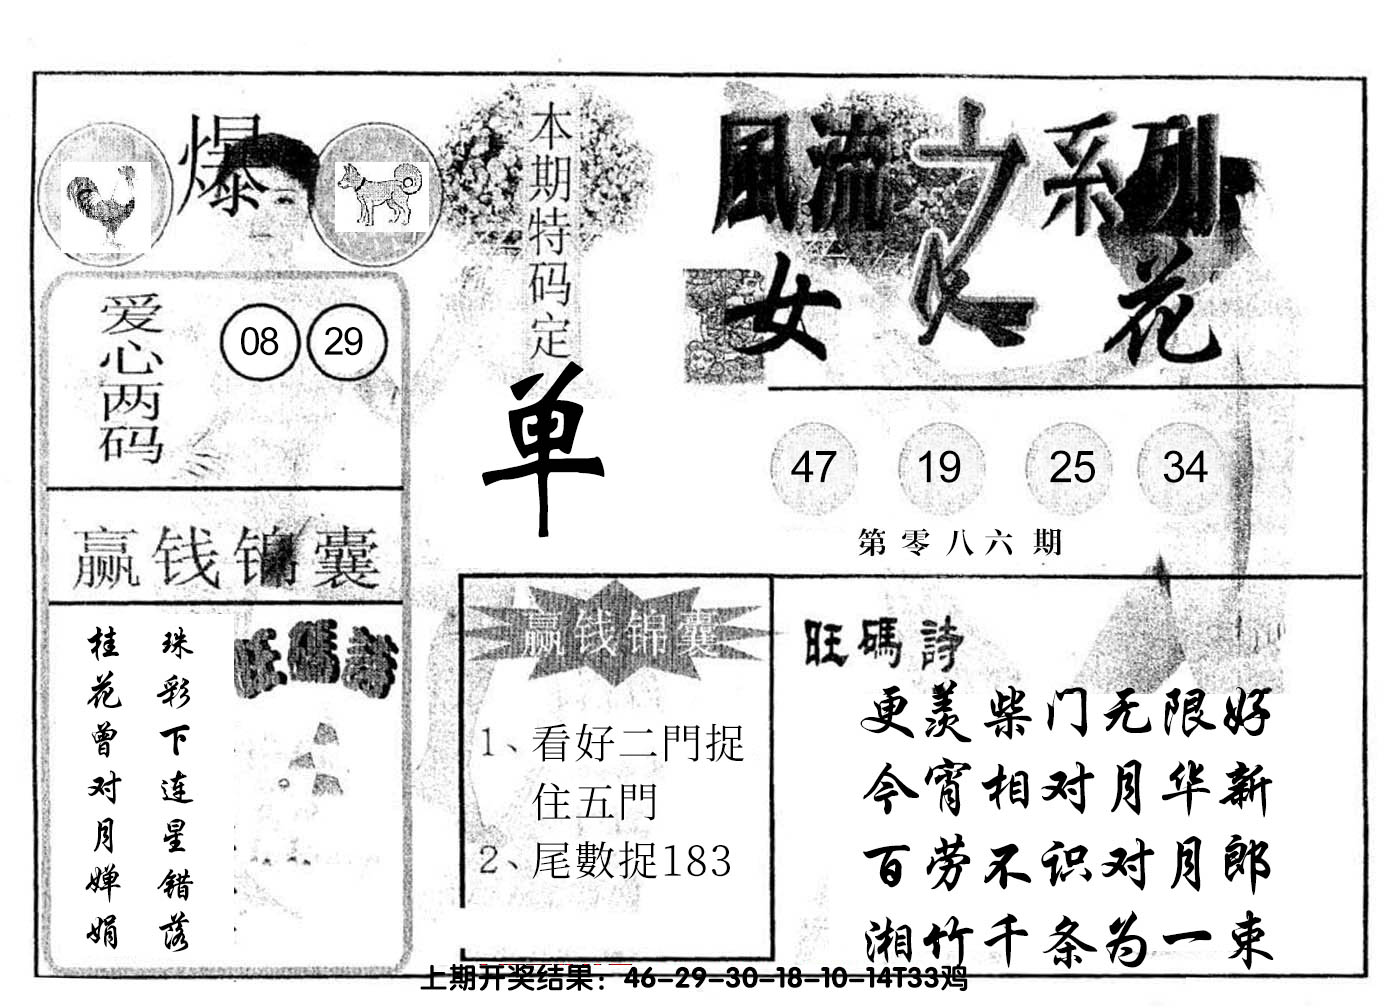 爆
爱心两码
08 29
赢钱锦囊
珠彩下连星错落
桂花曾对月婵娟
旺碼詩
本期特码定
单
赢钱锦囊
1、看好二門捉
住五門
2、尾數捉183
風流之系列
女人花
47 19 25 34
第零八六期
旺碼詩
更羡柴门无限好
今宵相对月华新
百劳不识对月郎
湘竹千条为一束
上期开奖结果：46-29-30-18-10-14T33鸡